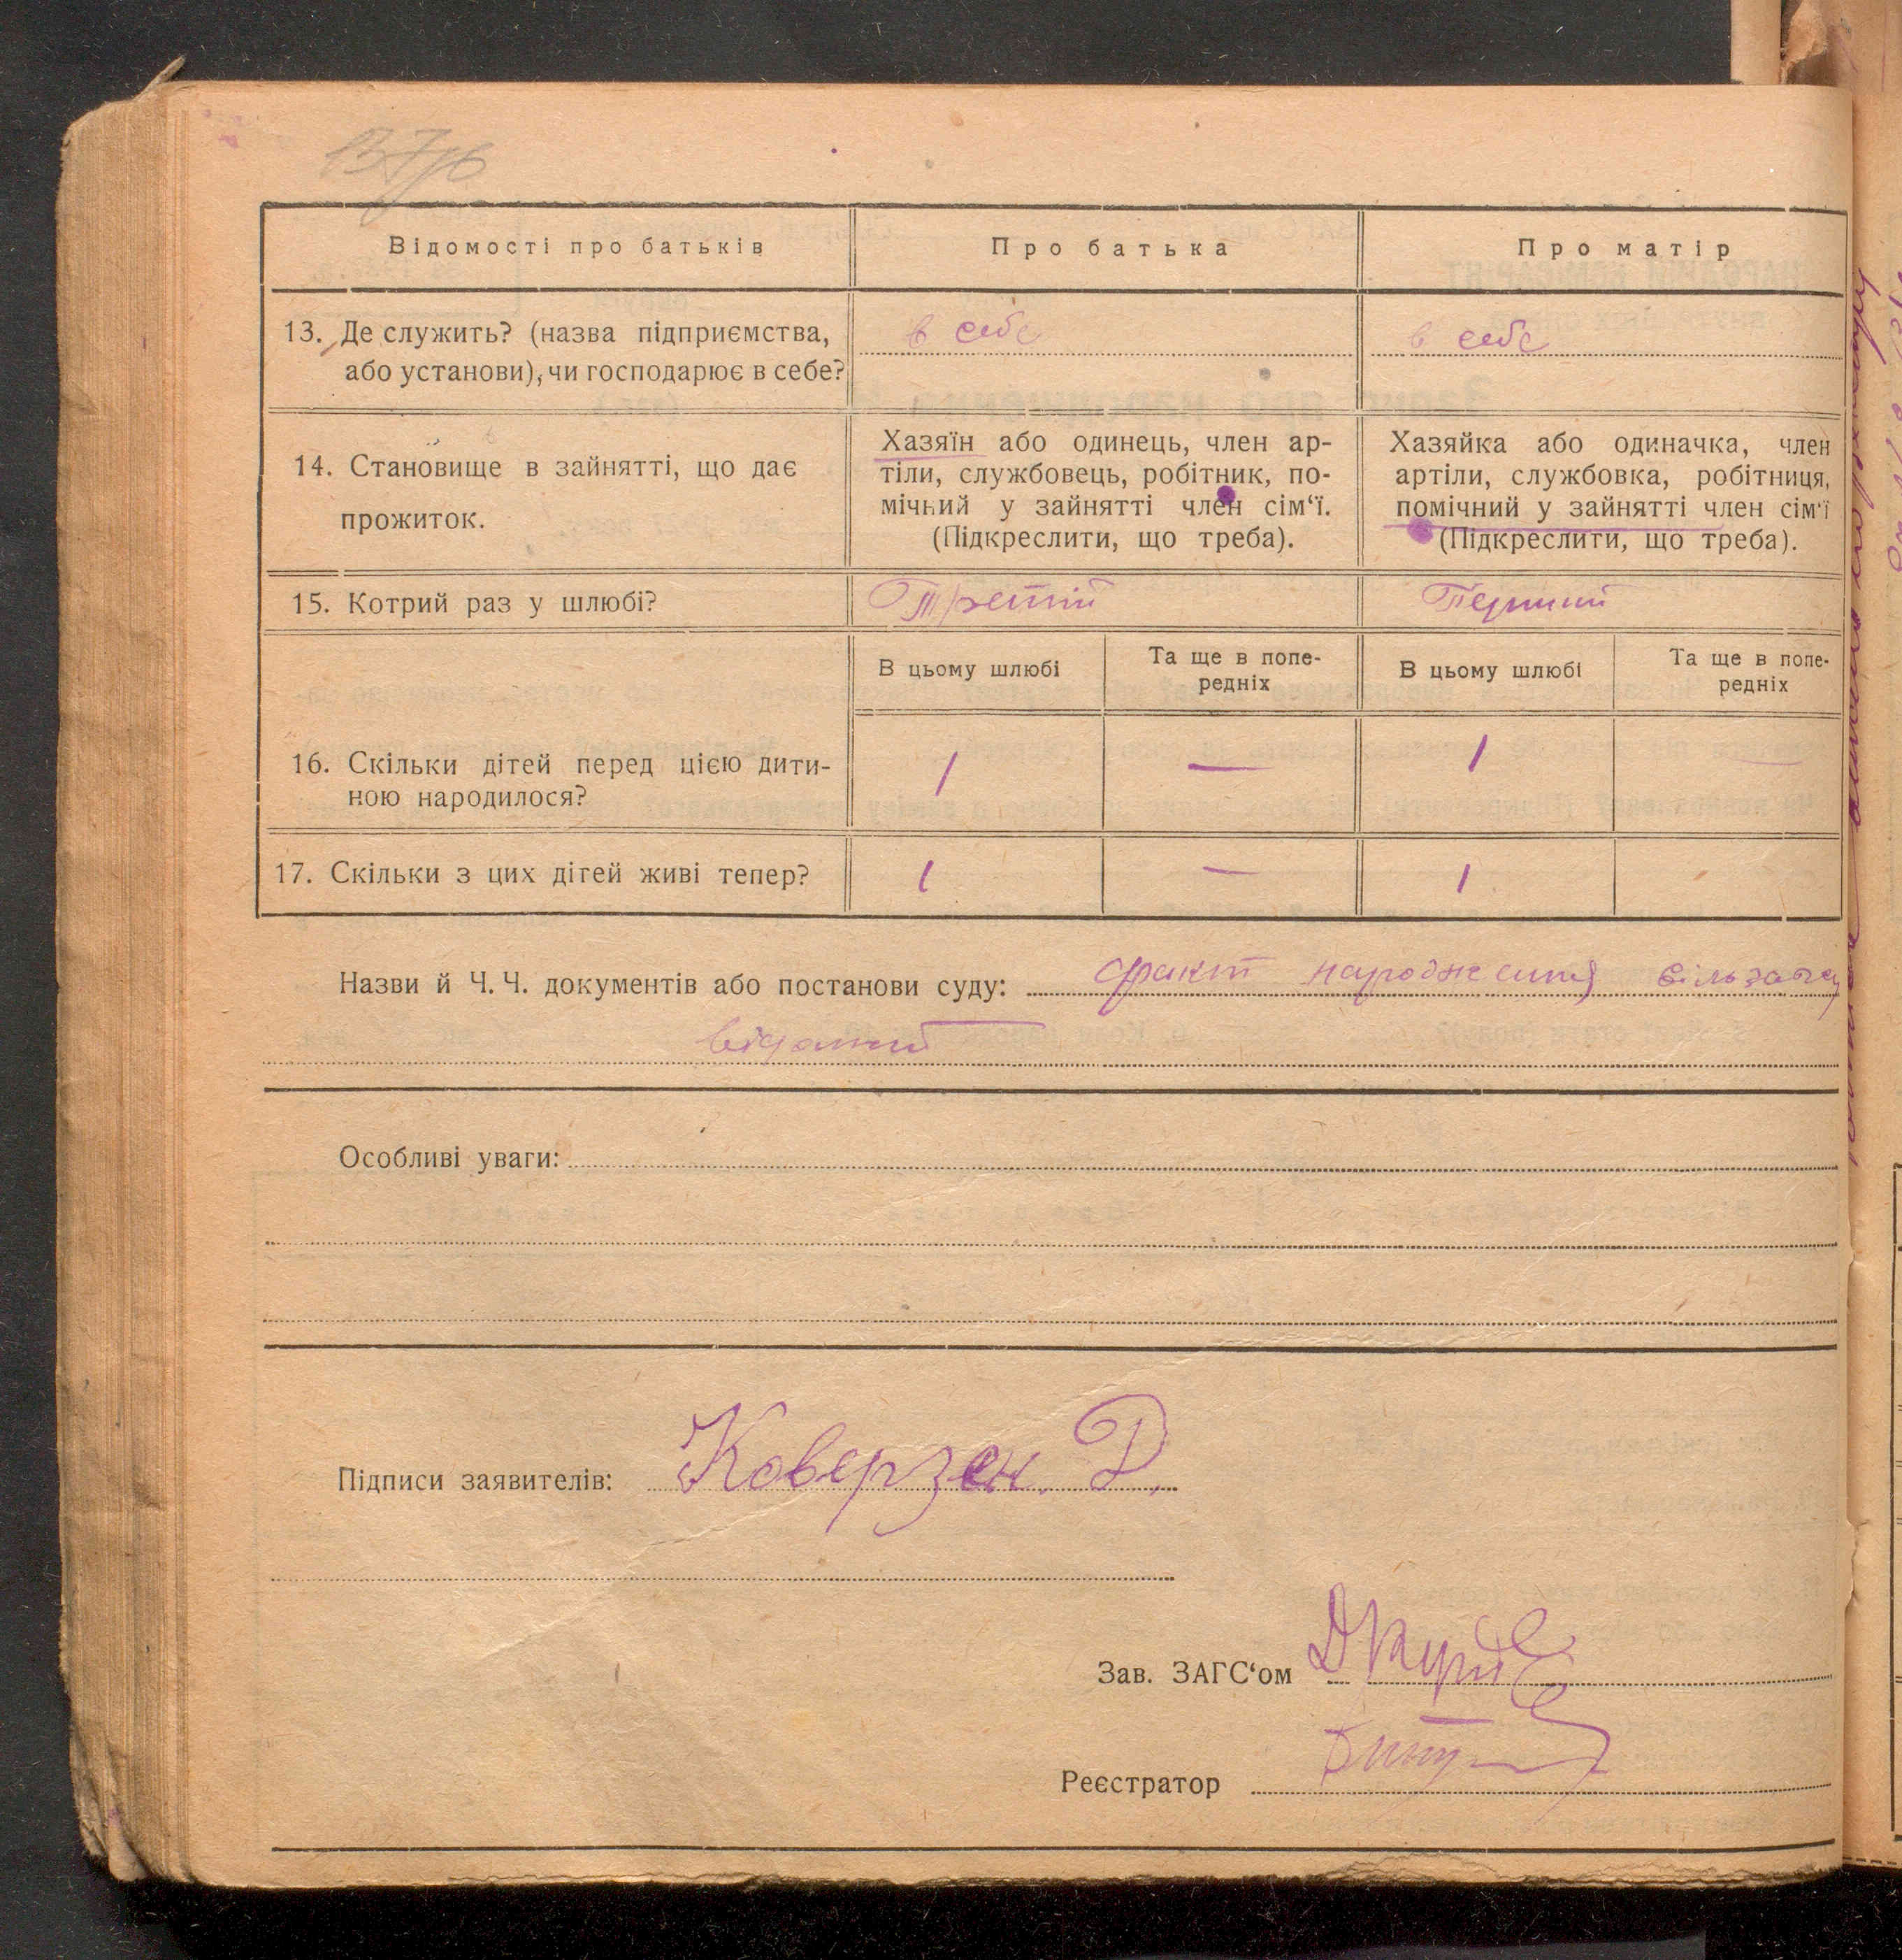 137
Відомості про батьків
Про батька
Про матір
13. Де служить? (назва підприємства,
або установи), чи господарює в себе?
в себе
в себе
14. Становище в зайнятті, що дає
прожиток.
Хазяїн або одинець, член ар-
тіли, службовець, робітник, по-
мічний у зайнятті член сім‘ї.
(Підкреслити, що треба).
Хазяйка або одиначка, член
артіли, службовка, робітниця,
помічний у зайнятті член сім‘ї
(Підкреслити, що треба).
15. Котрий раз у шлюбі?
Третій
Перший
В цьому шлюбі
Та ще в попе-
редніх
В цьому шлюбі
Та ще в попе-
редніх
16. Скільки дітей перед цією дити-
ною народилося?
1
—
1
—
17. Скільки з цих дітей живі тепер?
1
—
1
Назви й Ч. Ч. документів або постанови суду: факт народження сільзагсу
відомий
Особливі уваги:
Підписи заявителів: Коверзен. Д.
Зав. ЗАГС‘ом
Реєстратор